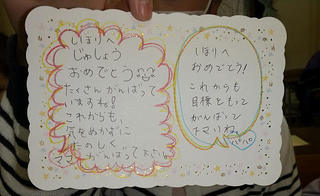 しほりへ
じゅしょう
おめでとう
たくさんがんばって
いますね!
これからも、
気をぬかずに
たのしく
がんばって下さい
ママ
しほりへ
おめでとう!
これからも
目標をもって
がんばって
下さいね。
パパ